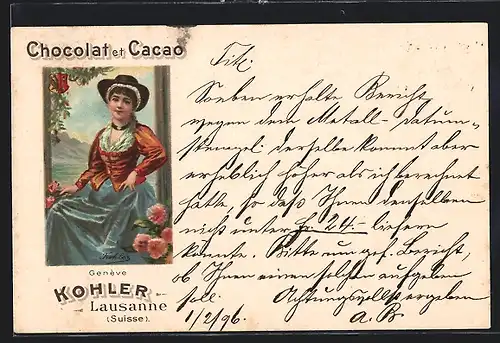 Chocolat et Cacao
Genève
KOHLER
Lausanne
(Suisse).
Tit.
Soeben erhalte Bericht
wegen dem Metall-Datum-
stempel derselbe kommt aber
erheblich höher als ich berechnet
hatte, so daß Ihnen denselben
nicht unter fr. 24.- liefern
konnte. Bitte um gef. Bericht,
ob Ihnen einen solchen aufgeben
soll. Achtungsvollst ergeben
1/2/96. A. B.